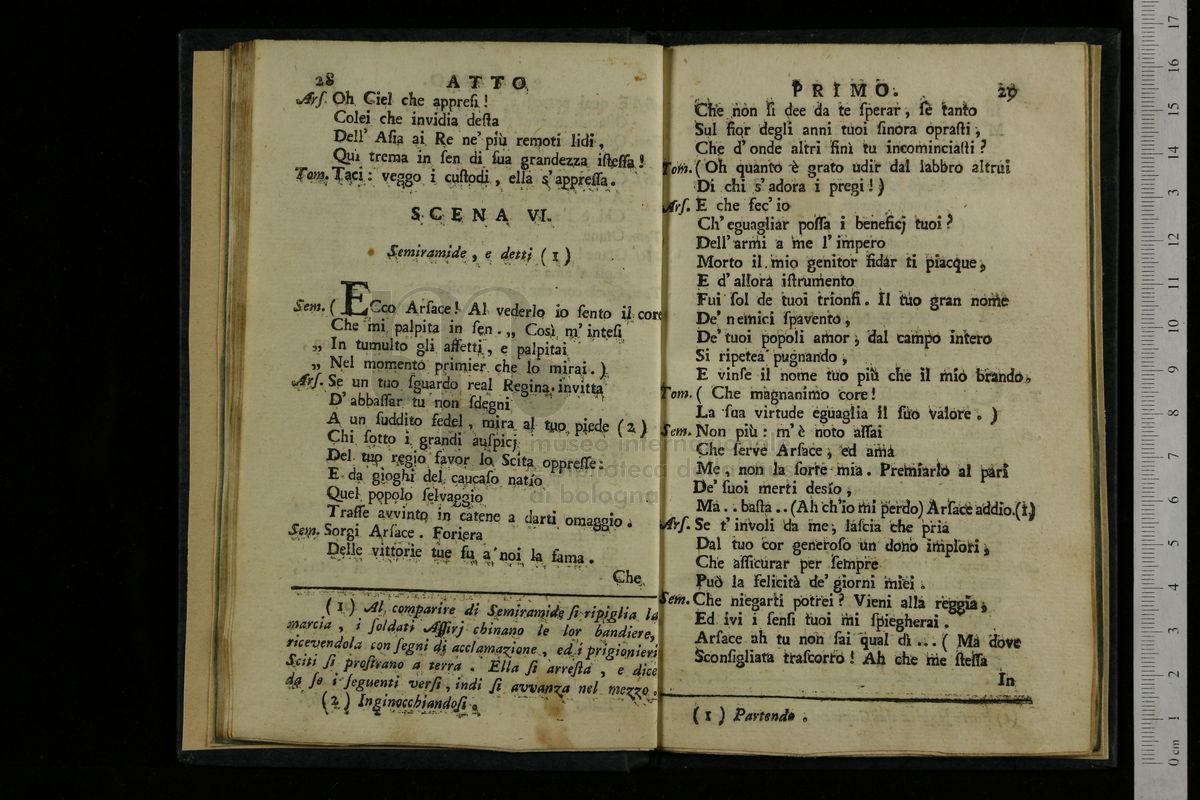 28 ATTO
Arſ. Oh Ciel che appreſi !
Colei che invidia deſta
Dell' Aſia ai Re ne' più remoti lidi ,
Qui trema in ſen di ſua grandezza iſteſſa !
Tom. Taci : veggo i cuſtodi , ella s' appreſſa .
SCENA VI.
Semiramide , e detti ( 1 )
Sem. ( ECco Arſace ! Al vederlo io ſento il core
Che mi palpita in ſen . „ Così m' inteſi
„ In tumulto gli affetti , e palpitai
„ Nel momento primier che lo mirai . )
Arſ. Se un tuo ſguardo real Regina invitta
D' abbaſſar tu non ſdegni
A un ſuddito fedel , mira al tuo piede ( 2 )
Chi ſotto i grandi auſpicj
Del tuo regio favor lo Scita oppreſſe :
E da gioghi del caucaſo natio
Quel popolo ſelvaggio
Traſſe avvinto in catene a darti omaggio .
Sem. Sorgi Arſace . Foriera
Delle vittorie tue fu a' noi la fama .
Che
( 1 ) Al comparire di Semiramide ſi ripiglia la
marcia , i ſoldati Aſſirj chinano le lor bandiere,
ricevendola con ſegni di acclamazione , ed i prigionieri
Sciti ſi proſtrano a terra . Ella ſi arreſta , e dice
da ſe i ſeguenti verſi , indi ſi avvanza nel mezzo .
( 2 ) Inginocchiandoſi .
PRIMO. 29
Che non ſi dee da te ſperar , ſe tanto
Sul fior degli anni tuoi ſinora opraſti ,
Che d' onde altri finì tu incominciaſti ?
Tom. ( Oh quanto è grato udir dal labbro altrui
Di chi s' adora i pregi ! )
Arſ. E che fec' io
Ch' eguagliar poſſa i beneficj tuoi ?
Dell' armi a me l' impero
Morto il mio genitor fidar ti piacque ,
E d' allora iſtrumento
Fui ſol de tuoi trionfi . Il tuo gran nome
De' nemici ſpavento ,
De' tuoi popoli amor , dal campo intero
Si ripetea pugnando ,
E vinſe il nome tuo più che il mio brando .
Tom. ( Che magnanimo core !
La ſua virtude eguaglia il ſuo valore . )
Sem. Non più : m' è noto aſſai
Che ſerve Arſace , ed ama
Me , non la ſorte mia . Premiarlo al pari
De' ſuoi merti deſio ,
Ma . . baſta . . (Ah ch' io mi perdo) Arſace addio.(1)
Arſ. Se t' involi da me , laſcia che pria
Dal tuo cor generoſo un dono implori ,
Che aſſicurar per ſempre
Può la felicità de' giorni miei .
Sem. Che niegarti potrei ? Vieni alla reggia ,
Ed ivi i ſenſi tuoi mi ſpiegherai .
Arſace ah tu non ſai qual dì ... ( Ma dove
Sconſigliata traſcorro ! Ah che me ſteſſa
In
( 1 ) Partendo .